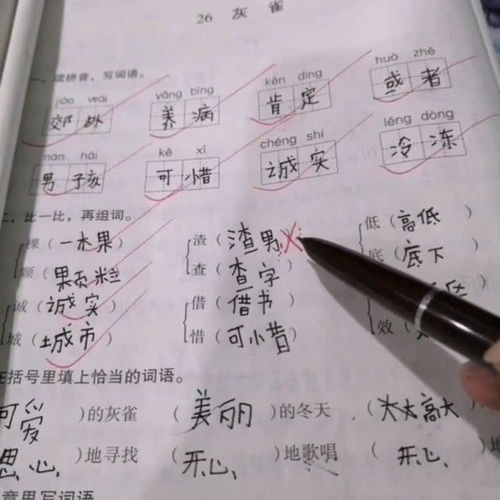 26 灰雀
一、读拼音，写词语。
jiāo wài yǎng bìng kěn dìng huò zhě
郊外 养病 肯定 或者
nán hái kě xī chéng shí lěng dòng
男孩 可惜 诚实 冷冻
二、比一比，再组词。
棵（一木果 渣（渣男 低（高低
颗（果页粒 查（查字 底（底下
诚（诚实 借（借书
城（土成市 惜（可小昔 效（
在括号里填上恰当的词语。
可爱）的灰雀（美丽）的冬天（大大高大
思心）地寻找（开心）地歌唱（开心
意写词语